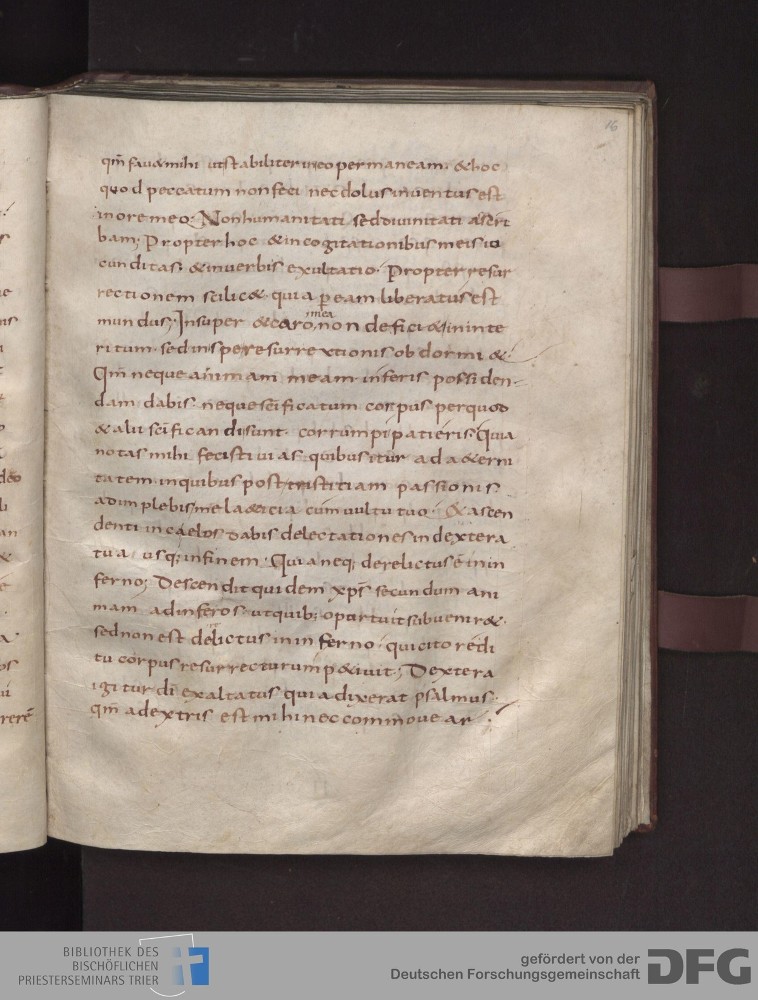 16
qm̄ fau& mihi ut stabiliter in eo permaneam. & hoc
quod peccatum non feci nec dolus inuentus est
in ore meo. Non humanitati sed diuinitati ascri
bam; Propter hoc & in cogitationibus meis iu
cunditas. & in uerbis exultatio. Propter resur
rectionem scilic& quia p eam liberatus est
mundus; Insuper & caro mea non defici& in inte
ritum. sed in spe resurrectionis obdormi&.
Qm̄ neque animam meam inferis possiden
dam dabis. neque scīficatum corpus per quod
& alii scīficandi sunt. corrumpi patieris. Quia
notas mihi fecisti uias. quibus itur ad a&erni
tatem. in quibus post tristitiam passionis
adimplebis me la&icia cum uultu tuo. & ascen
denti in caelos dabis delectationes in dextera
tua. usq; in finem. Quia neq; derelictus ē in in
ferno; Descendit quidem xp̄s secundum ani
mam ad inferos. ut quib; oportuit subuenir&.
sed non est delictus in inferno. qui cito redi
tu corpus resurrecturum p&iuit; Dextera
igitur dī exaltatus quia dixerat psalmus.
qm̄ a dextris est mihi ne commouear.
BIBLIOTHEK DES
BISCHÖFLICHEN
PRIESTERSEMINARS TRIER
gefördert von der
Deutschen Forschungsgemeinschaft
DFG